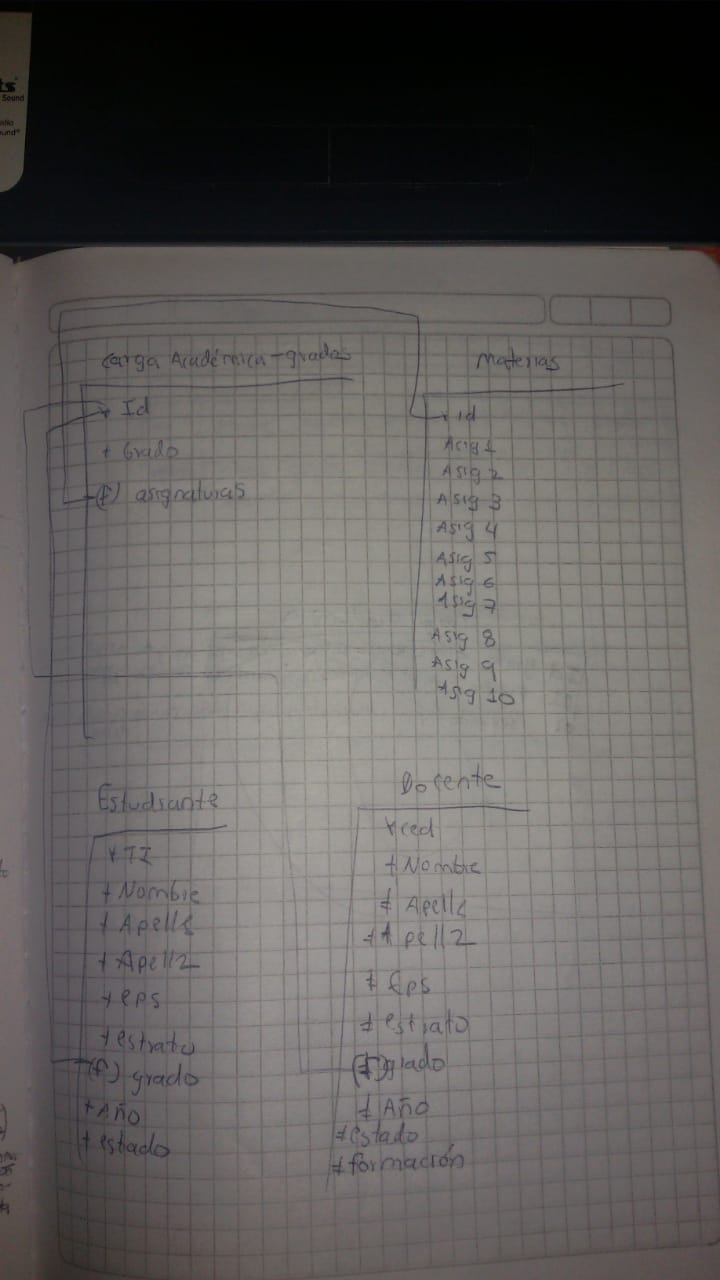 ts
Sound
und"
Carga Académica-grados
* Id
+ Grado
(f) asignaturas
Materias
* id
Asig 1
Asig 2
Asig 3
Asig 4
Asig 5
Asig 6
Asig 7
Asig 8
Asig 9
Asig 10
Estudiante
* TI
+ Nombre
+ Apell1
+ Apell2
+ eps
+ estrato
(f) grado
+ Año
+ estado
Docente
* ced
+ Nombre
+ Apell1
+ Apell2
+ Eps
+ estrato
(f) grado
+ Año
+ estado
+ formación